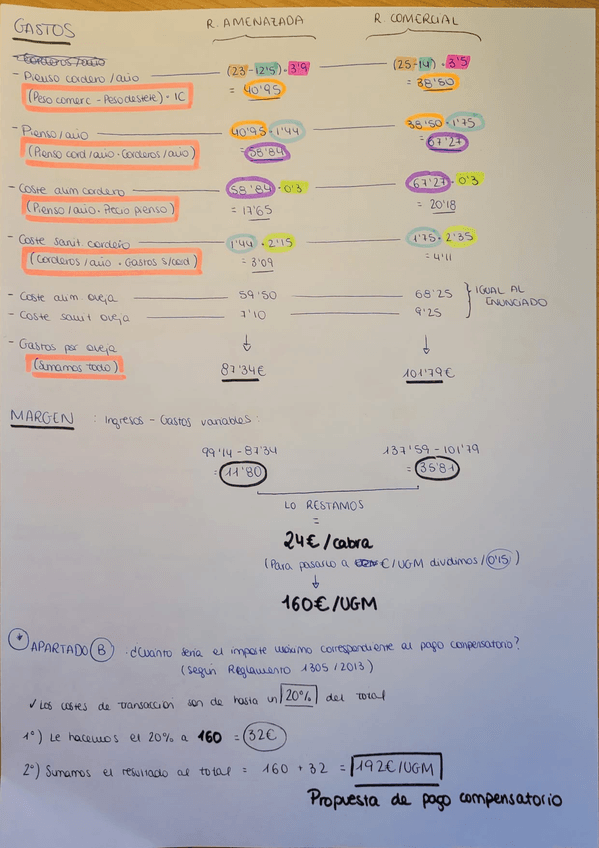 GASTOS R. AMENAZADA R. COMERCIAL
Corderos/año
- Pienso cordero/año (23-12'5)·3'9 (25-14)·3'5
(Peso comerc - Peso destete)·IC = 40'95 = 38'50
- Pienso/año 40'95·1'44 38'50·1'75
(Pienso cord/año·Corderos/año) = 58'84 = 67'27
- Coste alim cordero 58'84·0'3 67'27·0'3
(Pienso/año·Precio pienso) = 17'65 = 20'18
- Coste sanit cordero 1'44·2'15 1'75·2'35
(Corderos/año·Gastos s/cord) = 3'09 = 4'11
- Coste alim oveja 59'50 68'25 IGUAL AL
- Coste sanit oveja 7'10 9'25 ENUNCIADO
- Gastos por oveja ↓ ↓
(Sumamos todo) 87'34€ 101'79€
MARGEN : Ingresos - Gastos variables:
99'14-87'34 137'59-101'79
= 11'80 = 35'81
LO RESTAMOS
=
24€/cabra
(Para pasarlo a €/UGM dividimos/0'15)
↓
160€/UGM
* APARTADO B · ¿Cuánto sería el importe máximo correspondiente al pago compensatorio?
(según Reglamento 1305/2013)
✓ Los costes de transacción son de hasta un 20% del total
1º) Le hacemos el 20% a 160 = 32€
2º) Sumamos el resultado al total = 160 + 32 = 192€/UGM
Propuesta de pago compensatorio